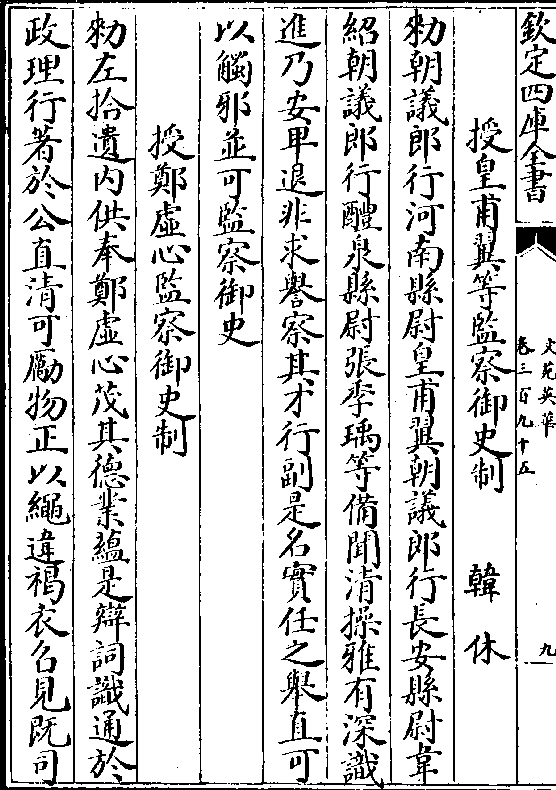 欽定四庫全書
文苑英華
卷三百九十五
九
授皇甫翼等監察御史制 韓休
勑朝議郎行河南縣尉皇甫翼朝議郎行長安縣尉韋
紹朝議郎行醴泉縣尉張季瑀等備聞清操雅有深識
進乃安卑退非求譽察其才行副是名實任之舉直可
以觸邪並可監察御史
授鄭虛心監察御史制
勑左拾遺内供奉鄭虛心茂其德業蘊是辯詞識通於
政理行著於公直清可勵物正以繩違褐衣召見既司